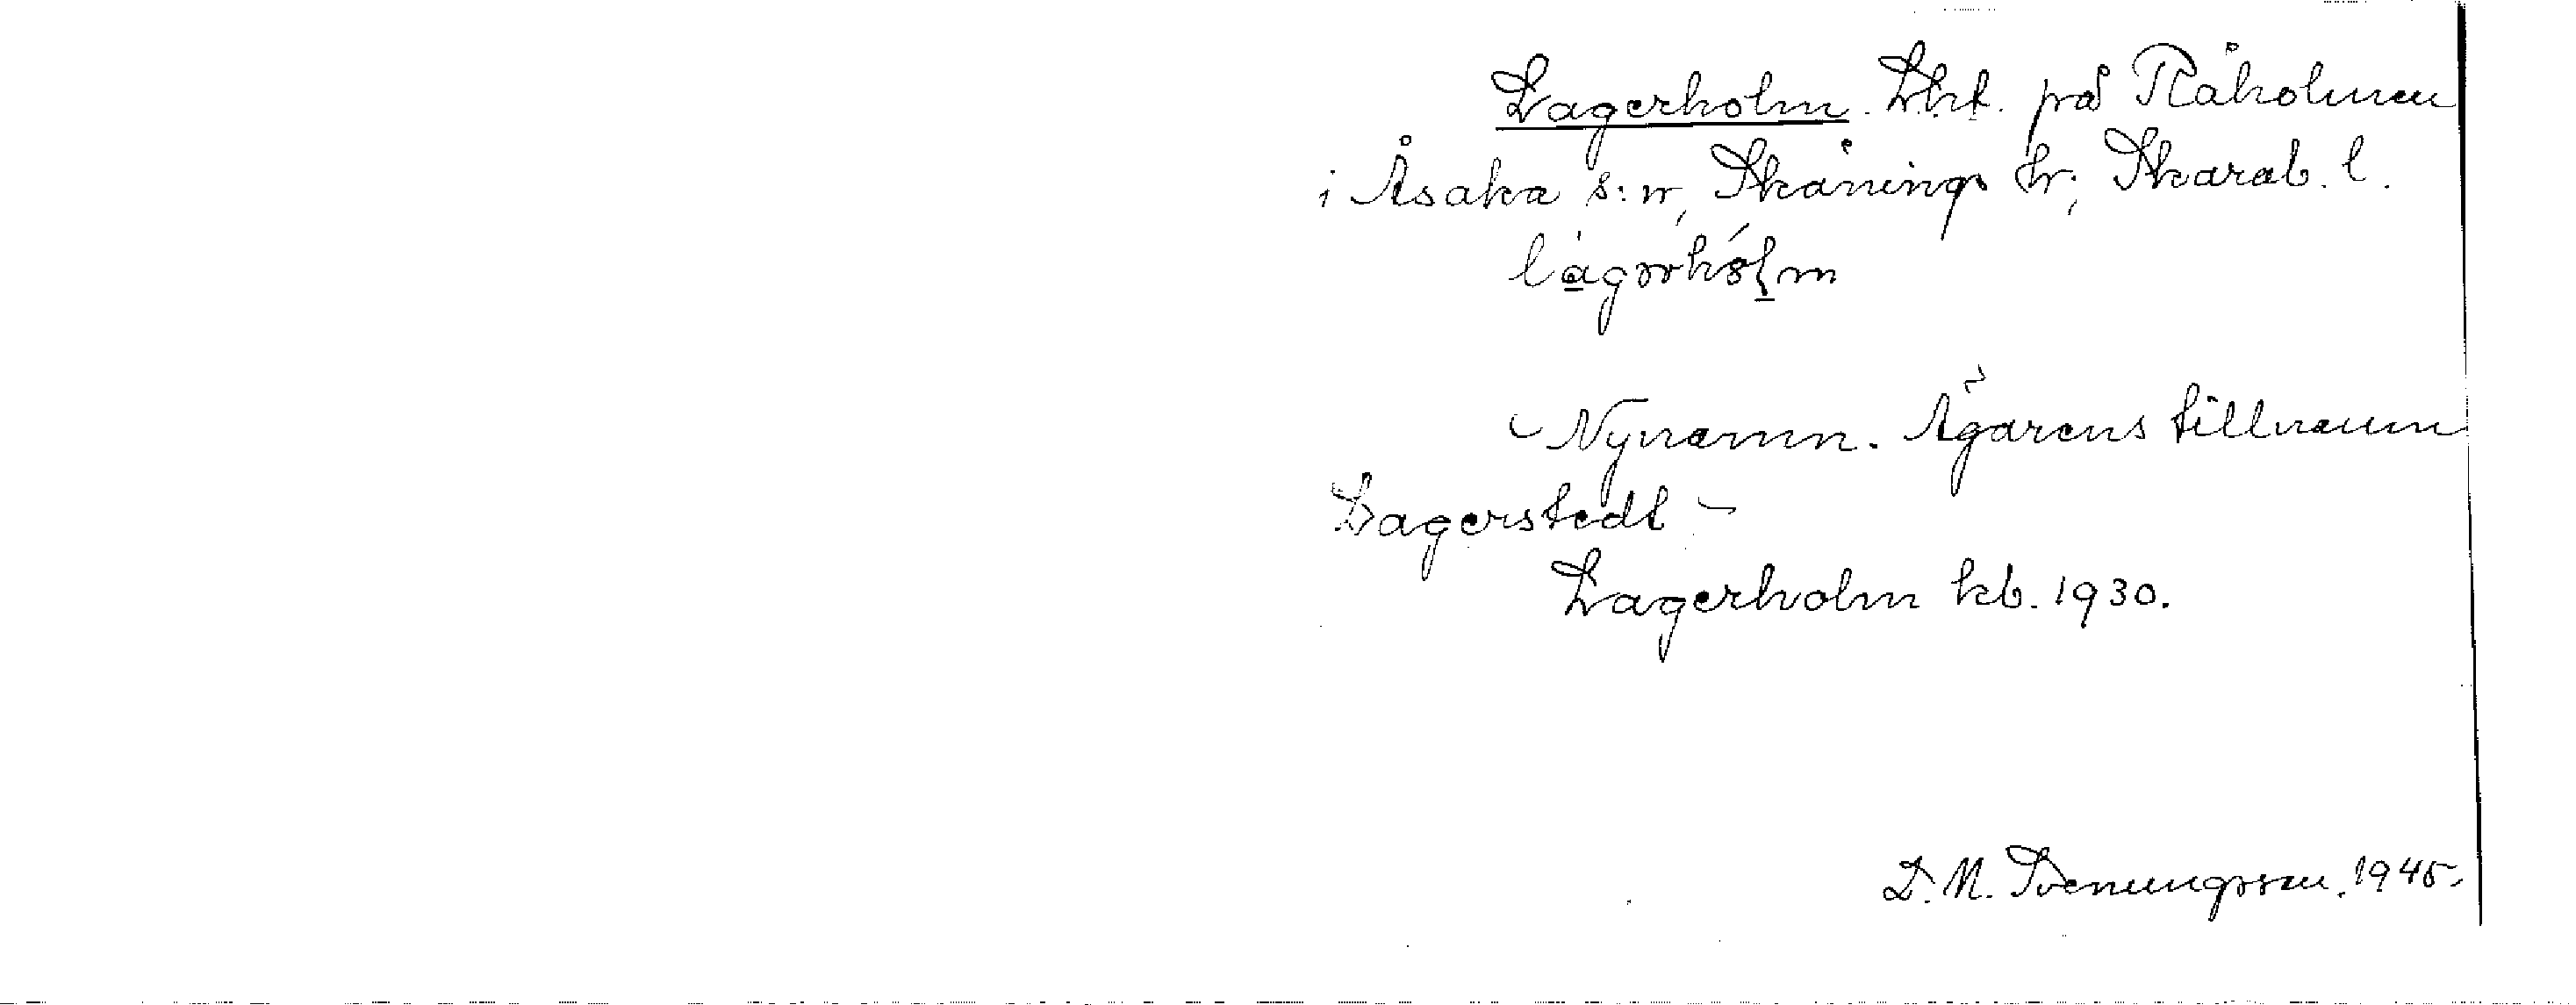 Lagerholm. Lht. på Råholmen
i Åsaka s:n, Skånings hr, Skarab. l.
làgərhólm
Nynamn. Ägarens tillnamn
Lagerstedt
Lagerholm kb. 1930.
D. M. Svenungsson. 1945.